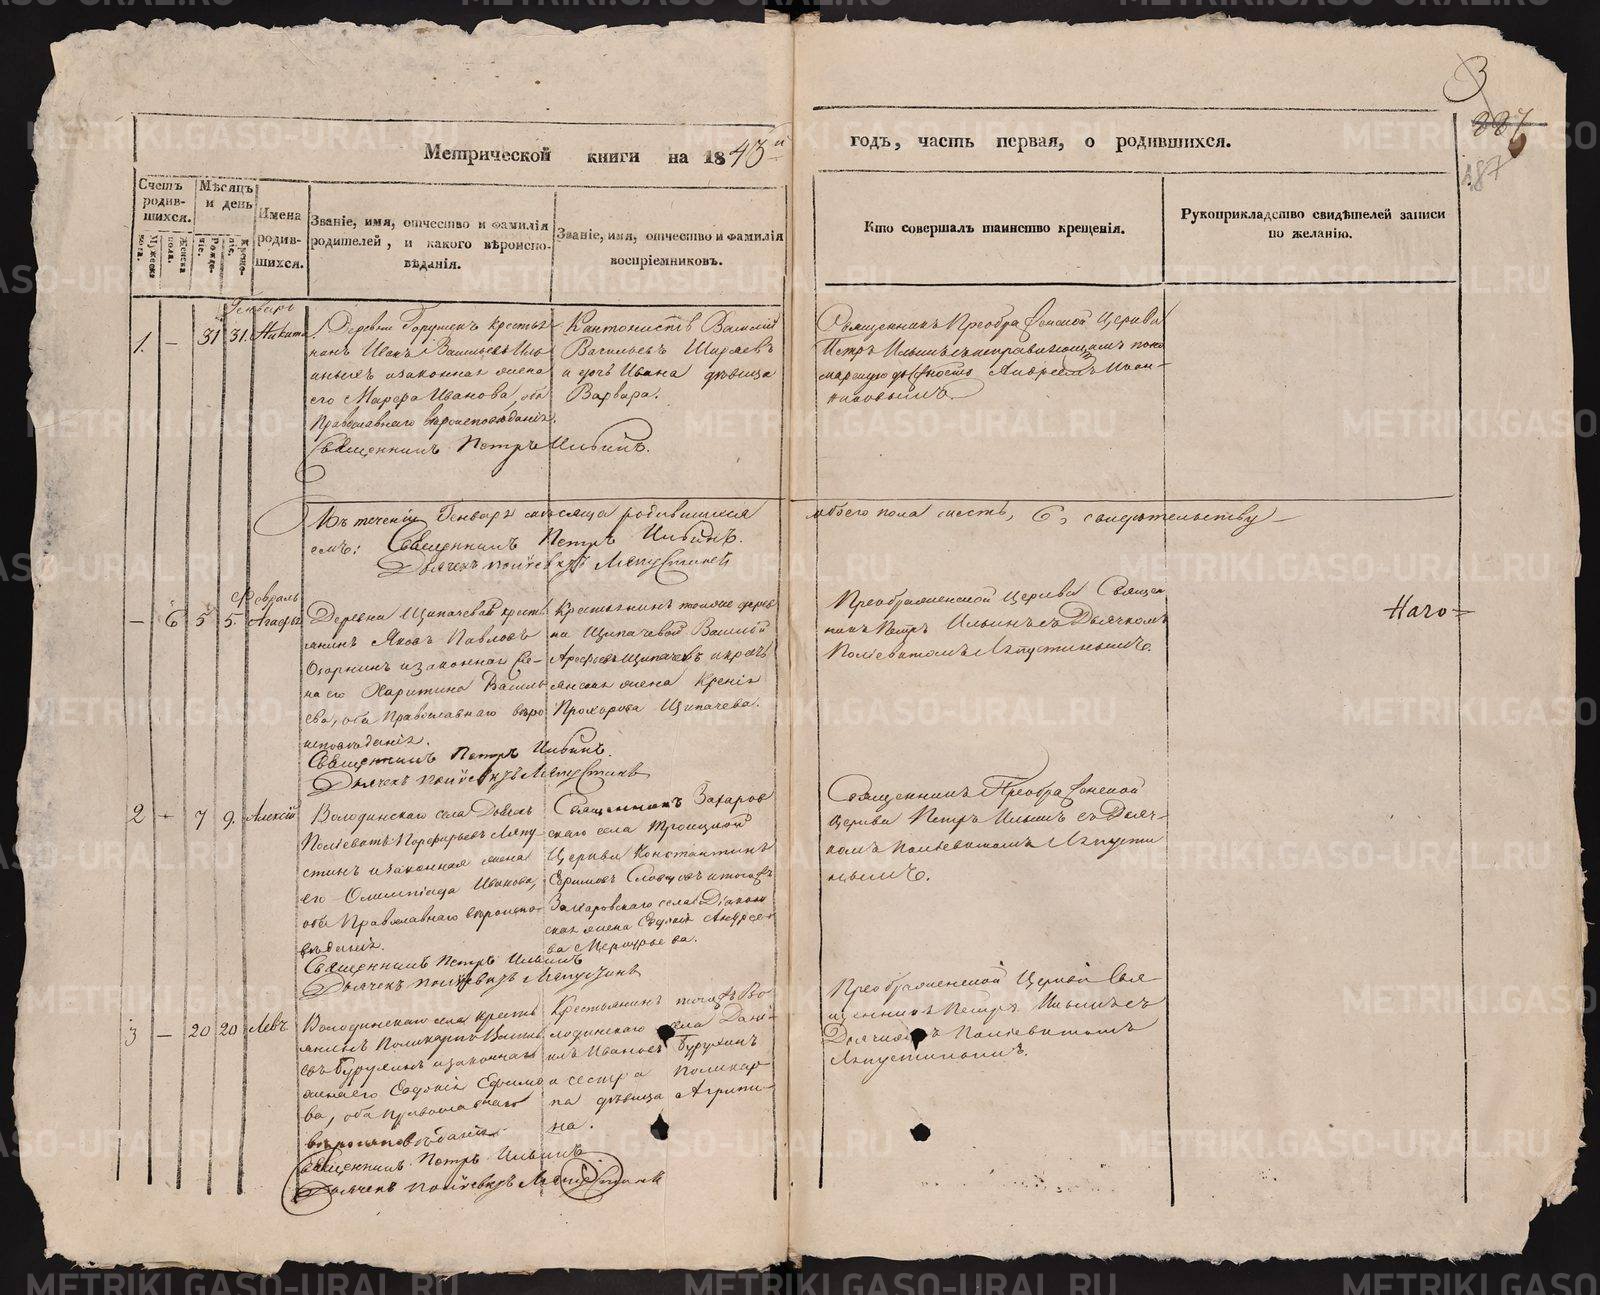 3
887
187
Метрической книги на 1843й
годъ, часть первая, о родившихся.
Счетъ родив-шихся.
Мужеска пола.
Женска пола.
Мѣсяцъ и день
Рожде-нія.
Креще-нія.
Имена родив-шихся.
Званіе, имя, отчество и фамилія
родителей, и какого вѣроиспо-
вѣданія.
Званіе, имя, отчество и фамилія
воспріемниковъ.
Кто совершалъ таинство крещенія.
Рукоприкладство свидѣтелей записи
по желанію.
Генварь
1. — 31 31. Никита
Деревни крестья
нинъ Иванъ Васильевъ
и законная жена
его Марѳа Иванова, оба
Православнаго вѣроисповѣданія.
Священникъ Петръ Ильинъ.
Кантонистъ Василій
Васильевъ Ширяевъ
и дочь Ивана дѣвица
Варвара.
Священникъ Преображенской Церкви
Петръ Ильинъ съ исправляющимъ поно
марскую должность Андреемъ
Въ теченіи Генваря мѣсяца родившихся
обоего пола шесть, 6, свидѣтельству
емъ: Священникъ Петръ Ильинъ.
Дьячекъ Поліевктъ Ляпустинъ
Февраль
— 6 5 5. Агафья
Деревни Щипачевой кресть
янинъ Яковъ Павловъ
и законная же-
на его Харитина Василь
ева, оба Православнаго вѣро
исповѣданія.
Священникъ Петръ Ильинъ.
Дьячекъ Поліевктъ Ляпустинъ
Крестьянинъ тоя же дерев
ни Щипачевой Василій
Арефьевъ Щипачевъ и кресть
янская жена Ксенія
Прохорова Щипачева.
Преображенской Церкви Священ
никъ Петръ Ильинъ съ Дьячкомъ
Поліевктомъ Ляпустинымъ.
Наго=
2 — 7 9. Алексій
Володинскаго села Дьячекъ
Поліевктъ Порфирьевъ Ляпу
стинъ и законная жена
его Олимпіада Иванова,
оба Православнаго вѣроиспо-
вѣданія.
Священникъ Петръ Ильинъ
Дьячекъ Поліевктъ Ляпустинъ
Священникъ Захаров
скаго села Троицкой
Церкви Константинъ
Ефимовъ Словцовъ и тогожъ
Захаровскаго села Діакон
ская жена Евдокія Андрее-
ва
Священникъ Преображенской
Церкви Петръ Ильинъ съ Дьяч-
комъ Поліевктомъ Ляпусти
нымъ.
3 — 20 20 Левъ
Володинскаго села кресть
янинъ Поликарпъ Василь
евъ Бурухинъ и законная
жена его Евдокія Ефимо
ва, оба Православнаго
вѣроисповѣданія.
Священникъ Петръ Ильинъ
Дьячекъ Поліевктъ Ляпустинъ
Крестьянинъ тогожъ Во
лодинскаго села Дани-
илъ Ивановъ Бурухинъ
и сестра Поликар
па дѣвица Агрипи-
на.
Преображенской Церкви Свя
щенникъ Петръ Ильинъ съ
Дьячкомъ Поліевктомъ
Ляпустинымъ.